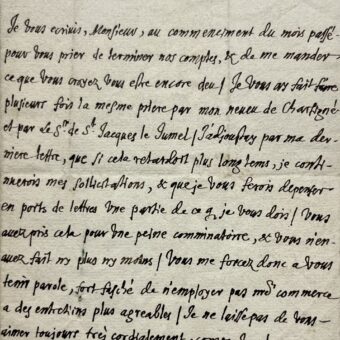 Je vous écrivis, Monsieur, au commencement du mois passé
pour vous prier de terminer nos comptes, & de me mander
ce que vous croyez vous estre encore deu / Je vous ay fait faire
plusieurs fois la mesme priere par mon neveu de Charsigné
et par le Sr. de St. Jacques le Jumel / J'adjoustay par ma der-
niere lettre, que si cela retardoit plus longtems, je conti-
nuerois mes sollicitations, & que je vous ferois depenser
en ports de lettres une partie de ce q. je vous dois / Vous
avez pris cela pour une peine comminatoire, & vous n'en
avez fait ny plus ny moins / Vous me forcez donc a vous
tenir parole, fort fasché de n'employer pas nre commerce
a des entretiens plus agreables / Je ne laisse pas de vous
aimer toujours très cordialement,